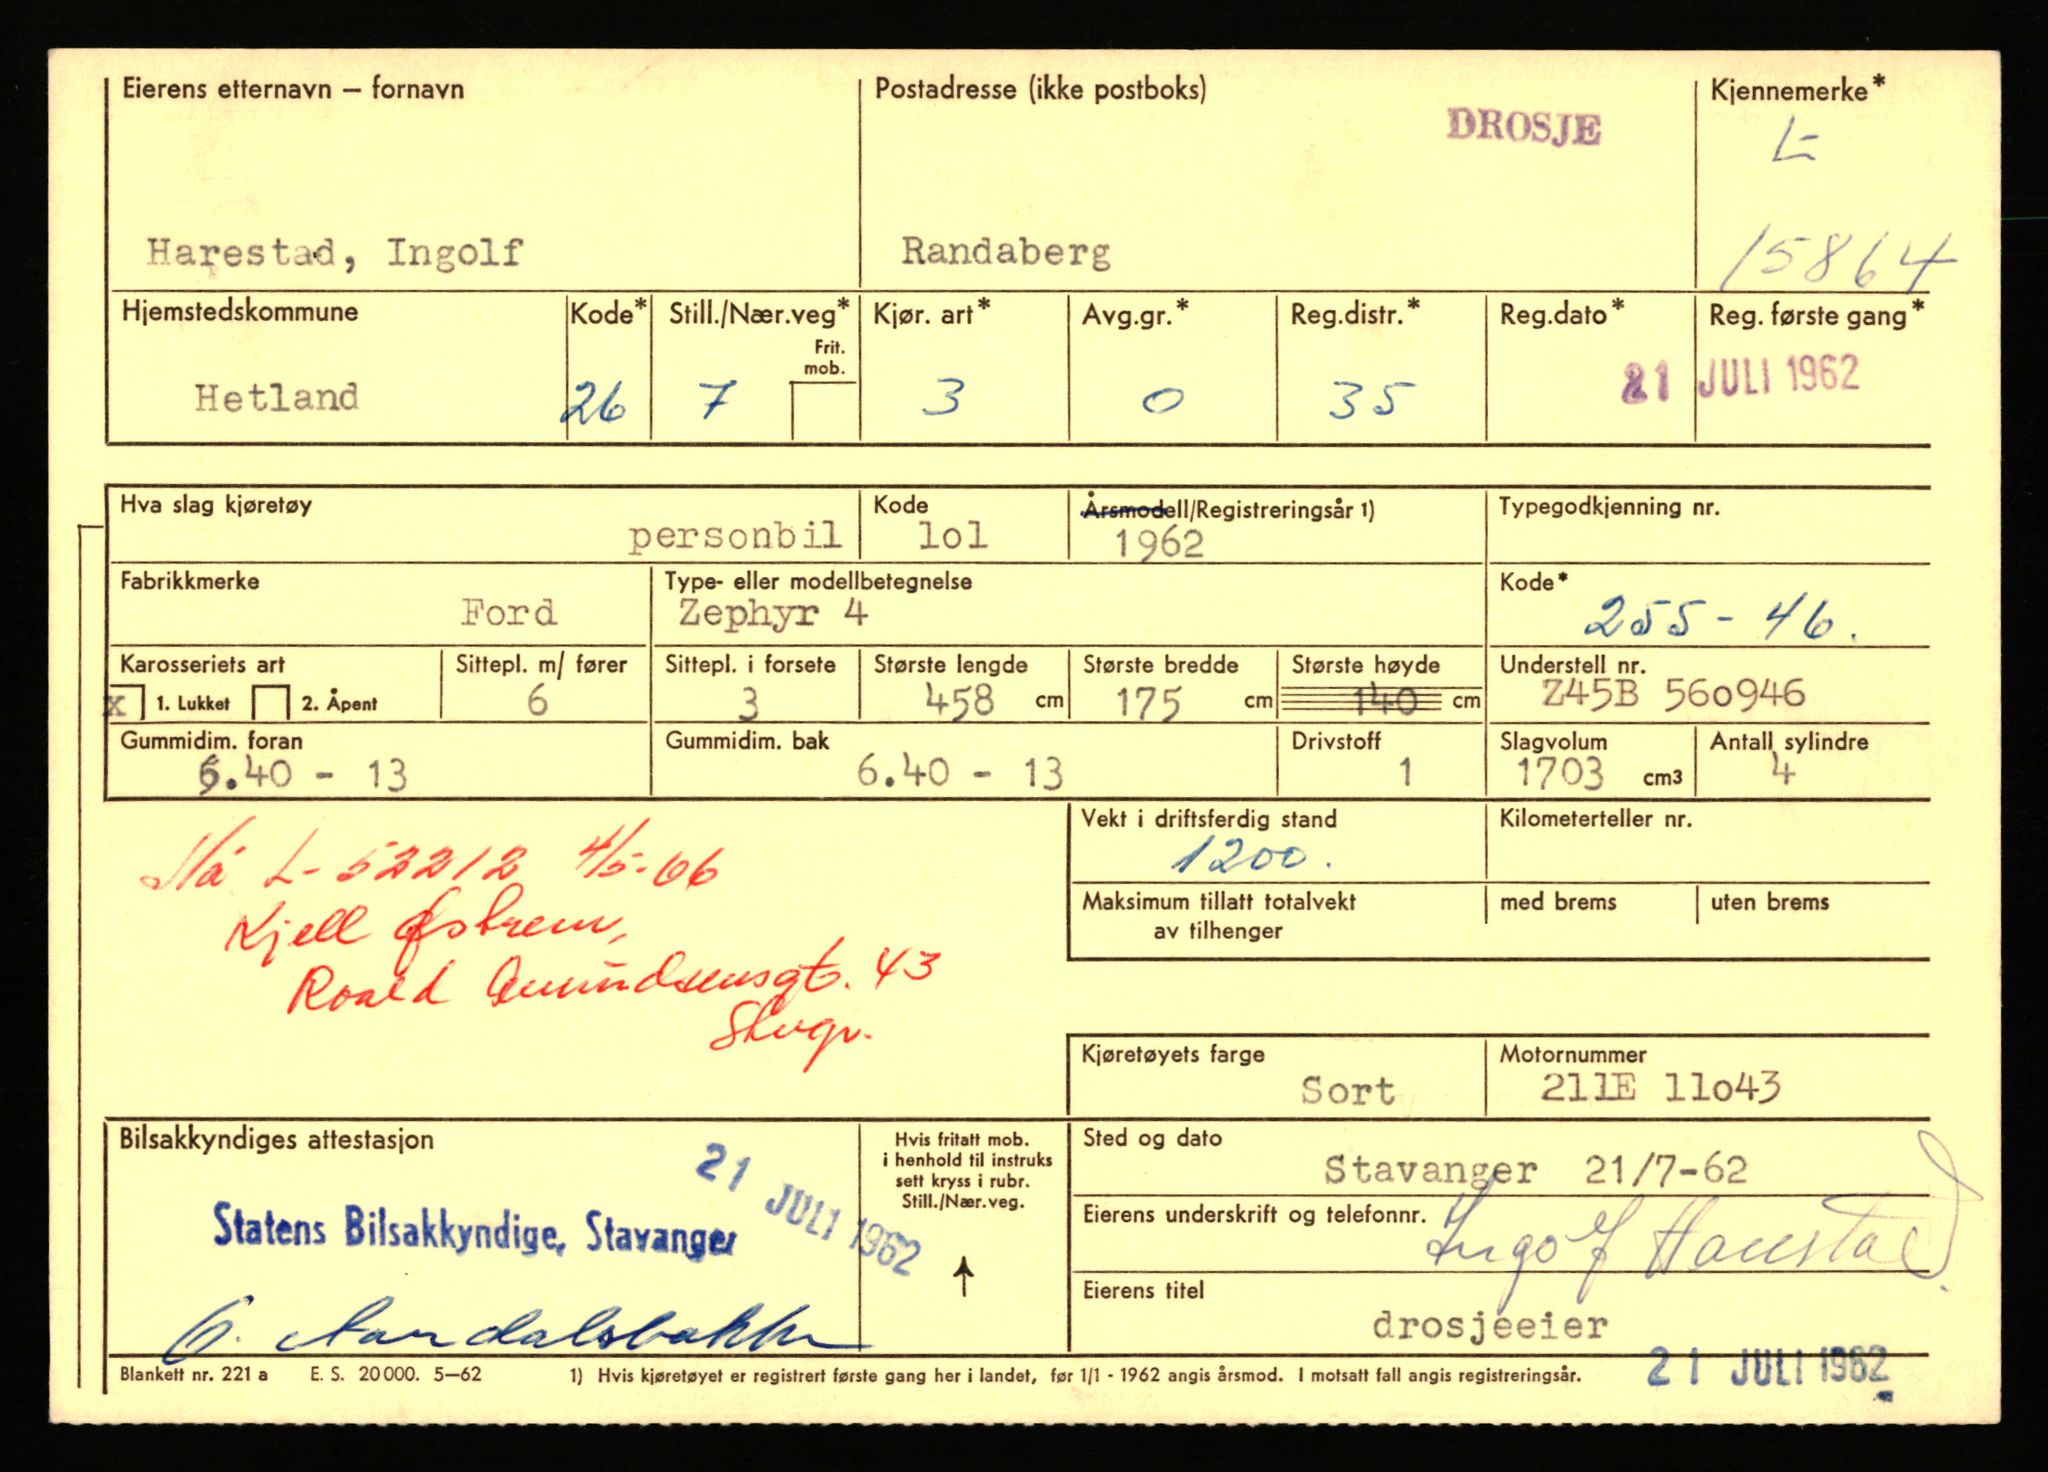 Eierens etternavn – fornavn Postadresse (ikke postboks) Kjennemerke*
DROSJE L-
Harestad, Ingolf Randaberg 15864
Hjemstedskommune Kode* Still./Nær.veg* Kjør. art* Avg.gr.* Reg.distr.* Reg.dato* Reg. første gang*
Frit.
mob.
Hetland 26 7 3 0 35 21 JULI 1962
Hva slag kjøretøy Kode Årsmodell/Registreringsår 1) Typegodkjenning nr.
personbil lol 1962
Fabrikkmerke Type- eller modellbetegnelse Kode*
Ford Zephyr 4 255-46.
Karosseriets art Sittepl. m/ fører Sittepl. i forsete Største lengde Største bredde Største høyde Understell nr.
x 1. Lukket 2. Åpent 6 3 458 cm 175 cm 140 cm Z45B 560946
Gummidim. foran Gummidim. bak Drivstoff Slagvolum Antall sylindre
6.40 - 13 6.40 - 13 1 1703 cm3 4
Vekt i driftsferdig stand Kilometerteller nr.
1200.
Nå L-52212 4/5-66
Maksimum tillatt totalvekt med brems uten brems
av tilhenger
Kjell Østrem,
Roald Amundsensgt. 43
Stvgr.
Kjøretøyets farge Motornummer
Sort 211E 11o43
Bilsakkyndiges attestasjon Hvis fritatt mob. Sted og dato
i henhold til instruks
sett kryss i rubr.
Still./Nær.veg.
21 JULI 1962 Stavanger 21/7-62
Statens Bilsakkyndige, Stavanger Eierens underskrift og telefonnr. Ingolf Harestad
Eierens titel
drosjeeier
21 JULI 1962
Blankett nr. 221 a E. S. 20 000. 5–62 1) Hvis kjøretøyet er registrert første gang her i landet, før 1/1 - 1962 angis årsmod. I motsatt fall angis registreringsår.